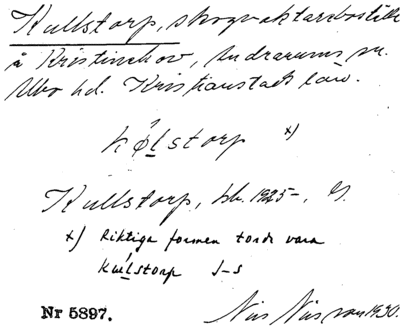 Kullstorp, skogvaktareboställe
å Kristinehov, Andrarums sn.
Albo hd. Kristianstads län.
kølstorp x)
Kullstorp, bl. 1925–, G.
x) Riktiga formen torde vara
kuĺstorp J–s
Nr 5897. Nils Nilsson 1930.